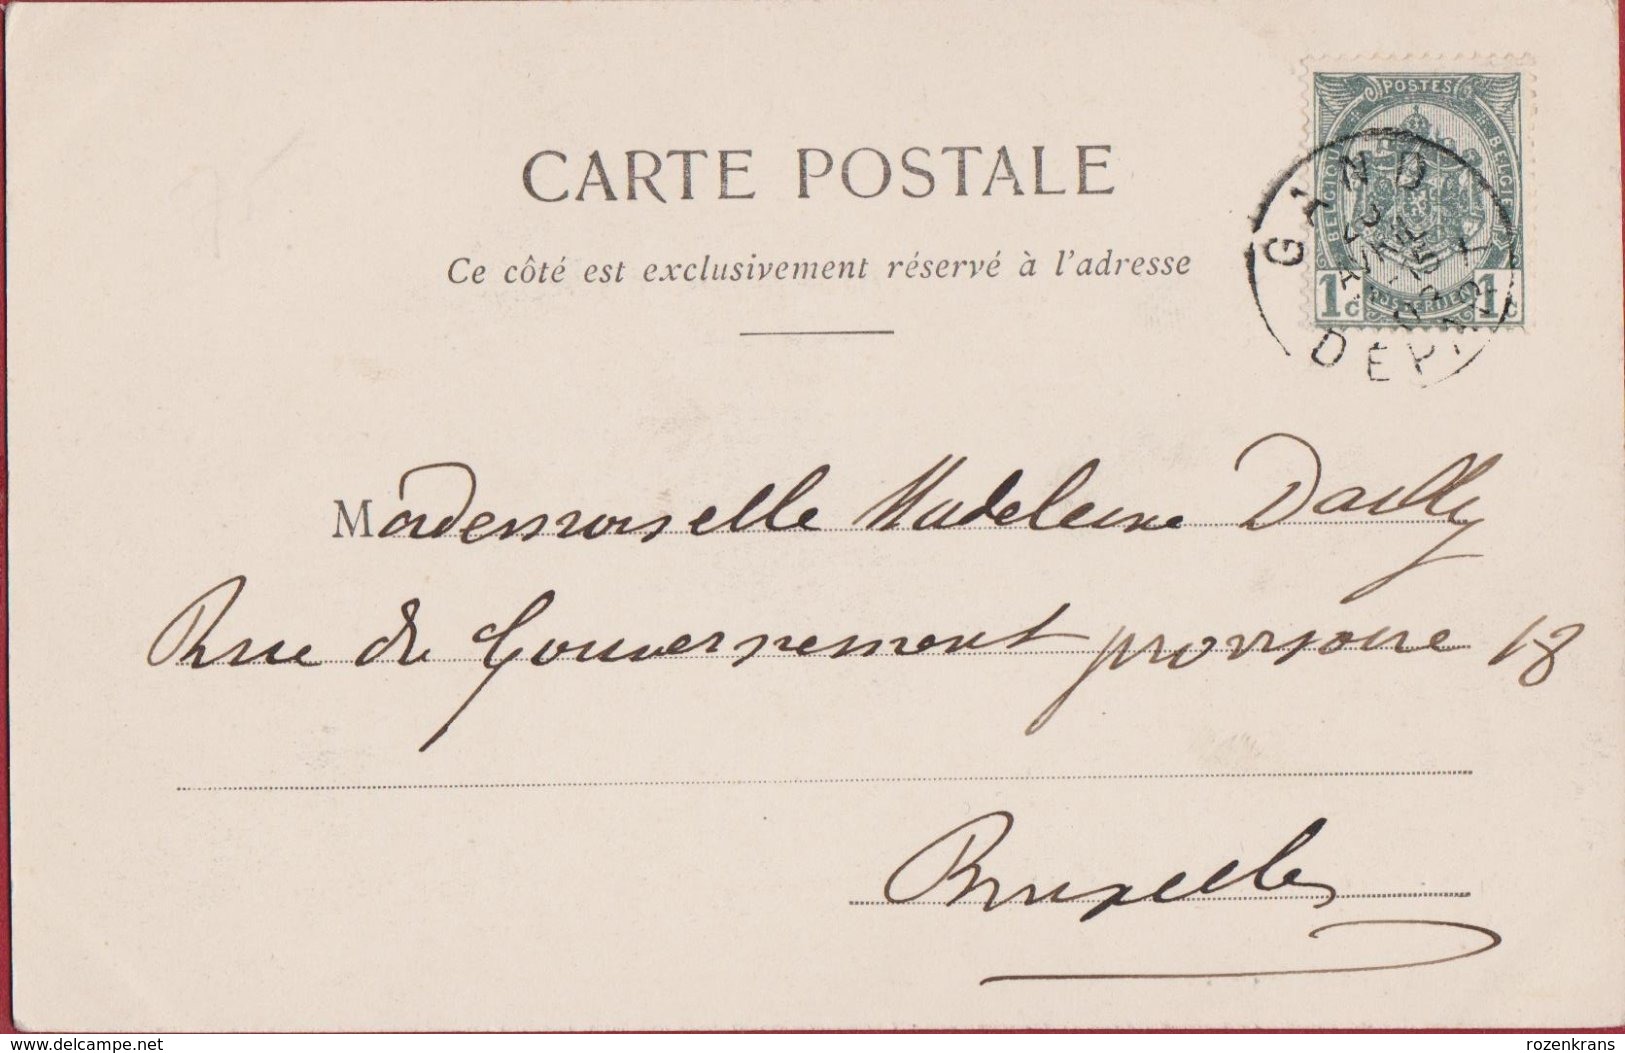 POSTES
BELGIQUE
BELGIE
POSTERIJEN
1c
1c
GAND
DEPART
CARTE POSTALE
Ce côté est exclusivement réservé à l'adresse
Mademoiselle Madeleine Dailly
Rue du Gouvernement provisoire 18
Bruxelles
www.delcampe.net
rozenkrans